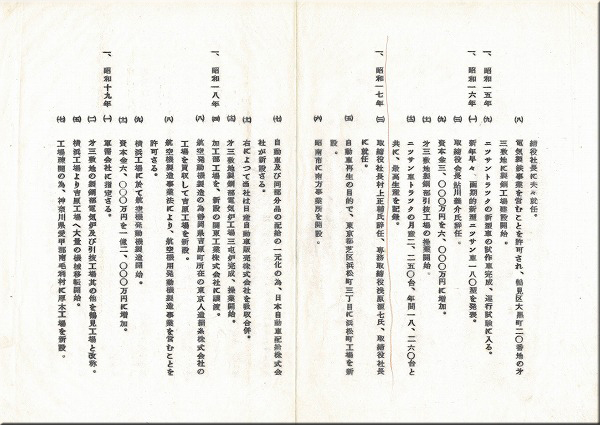 締役社長に夫々就任。
(八) 電気製鉄事業を営むことを許可され、鶴見区大黒町二〇番地の才
三敷地に製鋼工場建設開始。
一、昭和一五年 (九) ニツサントラツクの新型車の試作車完成、運行試験に入る。
一、昭和一六年 (一) 新年早々、画期的新型ニツサン車一八〇型を発表。
(二) 取締役会長鮎川義介氏辞任。
(九) 資本金三、〇〇〇万円を六、〇〇〇万円に増加。
才三敷地製鋼部引抜工場の操業開始。
ニツサントラツクの月産二、二五〇台、年間一八、二六〇台と
共に、最高生産を記録。
一、昭和一七年 (三) 取締役社長村上正輔氏辞任、専務取締役浅原源七氏、取締役社長
に就任。
(四) 自動車再生の目的で、東京都芝区浜松町三丁目に浜松町工場を新
設。
(九) 昭南市に南方事業所を開設。
(七) 自動車及び同部分品の配給の一元化の為、日本自動車配給株式会
社が新設さる。
右によつて当社は日産自動車販売株式会社を吸収合併。
才三敷地製鋼部電気炉工場三屯炉完成、操業開始。
一、昭和一八年 (四) 加工部工場を、新設の関東工業株式会社に譲渡。
(八) 航空発動機製造の為静岡県吉原町所在の東京人造絹糸株式会社の
工場を買収して吉原工場を新設。
(八) 航空機製造事業法により、航空機用発動機製造事業を営むことを
許可さる。
(九) 横浜工場に於て航空機発動機製造開始。
資本金六、〇〇〇万円を一億二、〇〇〇万円に増加。
一、昭和十九年 (一) 軍需会社に指定さる。
(二) 才三敷地の製鋼部電気炉及び引抜工場其の他を鶴見工場と改称。
(四) 横浜工場より吉原工場へ大量の機械移転開始。
(七) 工場疎開の為、神奈川県愛甲郡南毛利村に厚木工場を新設。